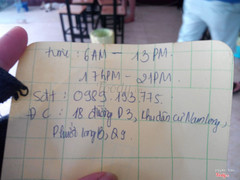 time : 6AM – 13PM.
17hPM – 21PM.
Sđt : 0989 193.775.
Đ C : 18 đường D3, khu dân cư Nam Long,
Phước Long B, Q9